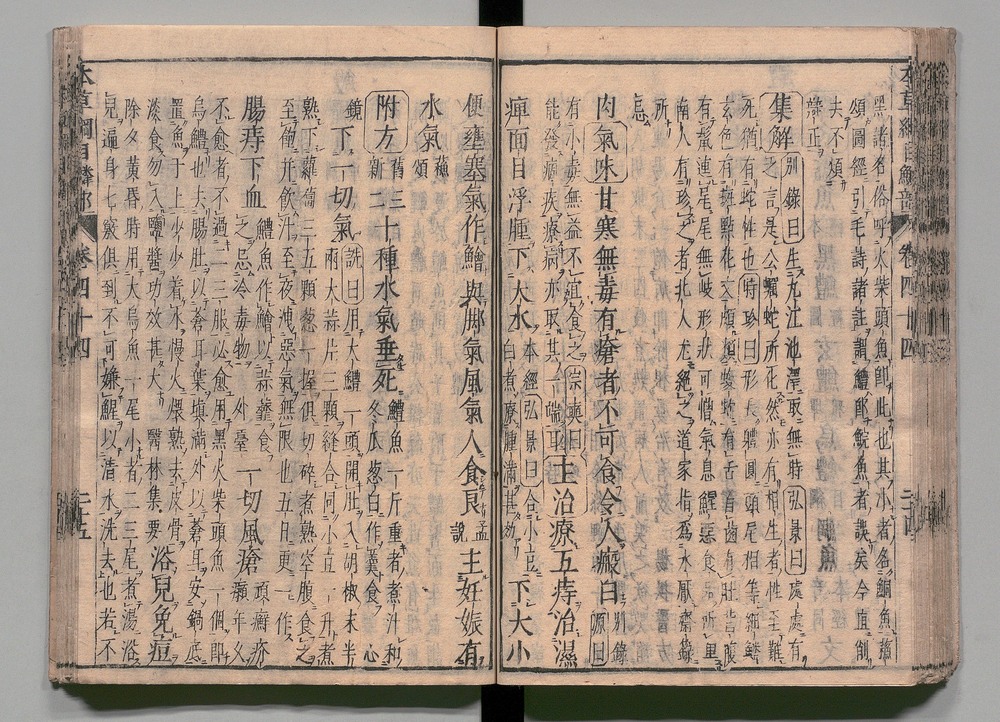 本草綱目鱗部 卷四十四 二十四
黑諸名俗呼火柴頭魚即此也其小者名鮦魚蘇
頌圖經引毛詩諸註謂鱧即鯇魚者誤矣今直削
去不煩
辯正
集解 別錄曰生九江池澤取無時弘景曰處處有
之言是公蠣蛇所化然亦有相生者性至難
死猶有蛇性也時珍曰形長體圓頭尾相等細鱗
玄色有斑點花文頗類蝮蛇有舌有齒有肚背腹
有鬣連尾尾無岐形狀可憎氣息鯹惡食品所卑
南人有珍之者北人尤絕之道家指爲水厭齋籙
所
忌
肉氣味甘寒無毒有瘡者不可食令人瘢白 別錄 源曰
有小毒無益不宜食之宗奭曰
能發痼疾療病亦取其一端耳 主治療五痔治濕
痺面目浮腫下大水 本經弘景曰合小豆
白煮療腫滿甚効 下大小
便壅塞氣作鱠與脚氣風氣人食良 孟詵 主妊娠有
水氣 蘇頌
附方 舊三新二 十種水氣垂死 鱧魚一斤重者煮汁和
冬瓜葱白作羹食 心
鏡 下一切氣 詵曰用大鱧一頭開肚入胡椒末半
兩大蒜片三顆縫合同小豆一升煮
熟下蘿蔔三五顆葱一握俱切碎煮熟空腹食之
至飽并飲汁至夜洩惡氣無限也五日更一作
腸痔下血 鱧魚作鱠以蒜虀食
之忌冷毒物 外臺 一切風瘡 頑癬疥
癩年久
不愈者不過二三服必愈用黑火柴頭魚一個即
烏鱧也去腸肚以蒼耳葉填滿外以蒼耳安鍋底
置魚于上少少着水慢火煨熟去皮骨
淡食勿入鹽醬功效甚大 醫林集要 浴兒免痘
除夕黃昏時用大烏魚一尾小者二三尾煮湯浴
兒遍身七竅俱到不可嫌鯹以清水洗去也若不
本草綱目鱗部 卷四十四 二十五